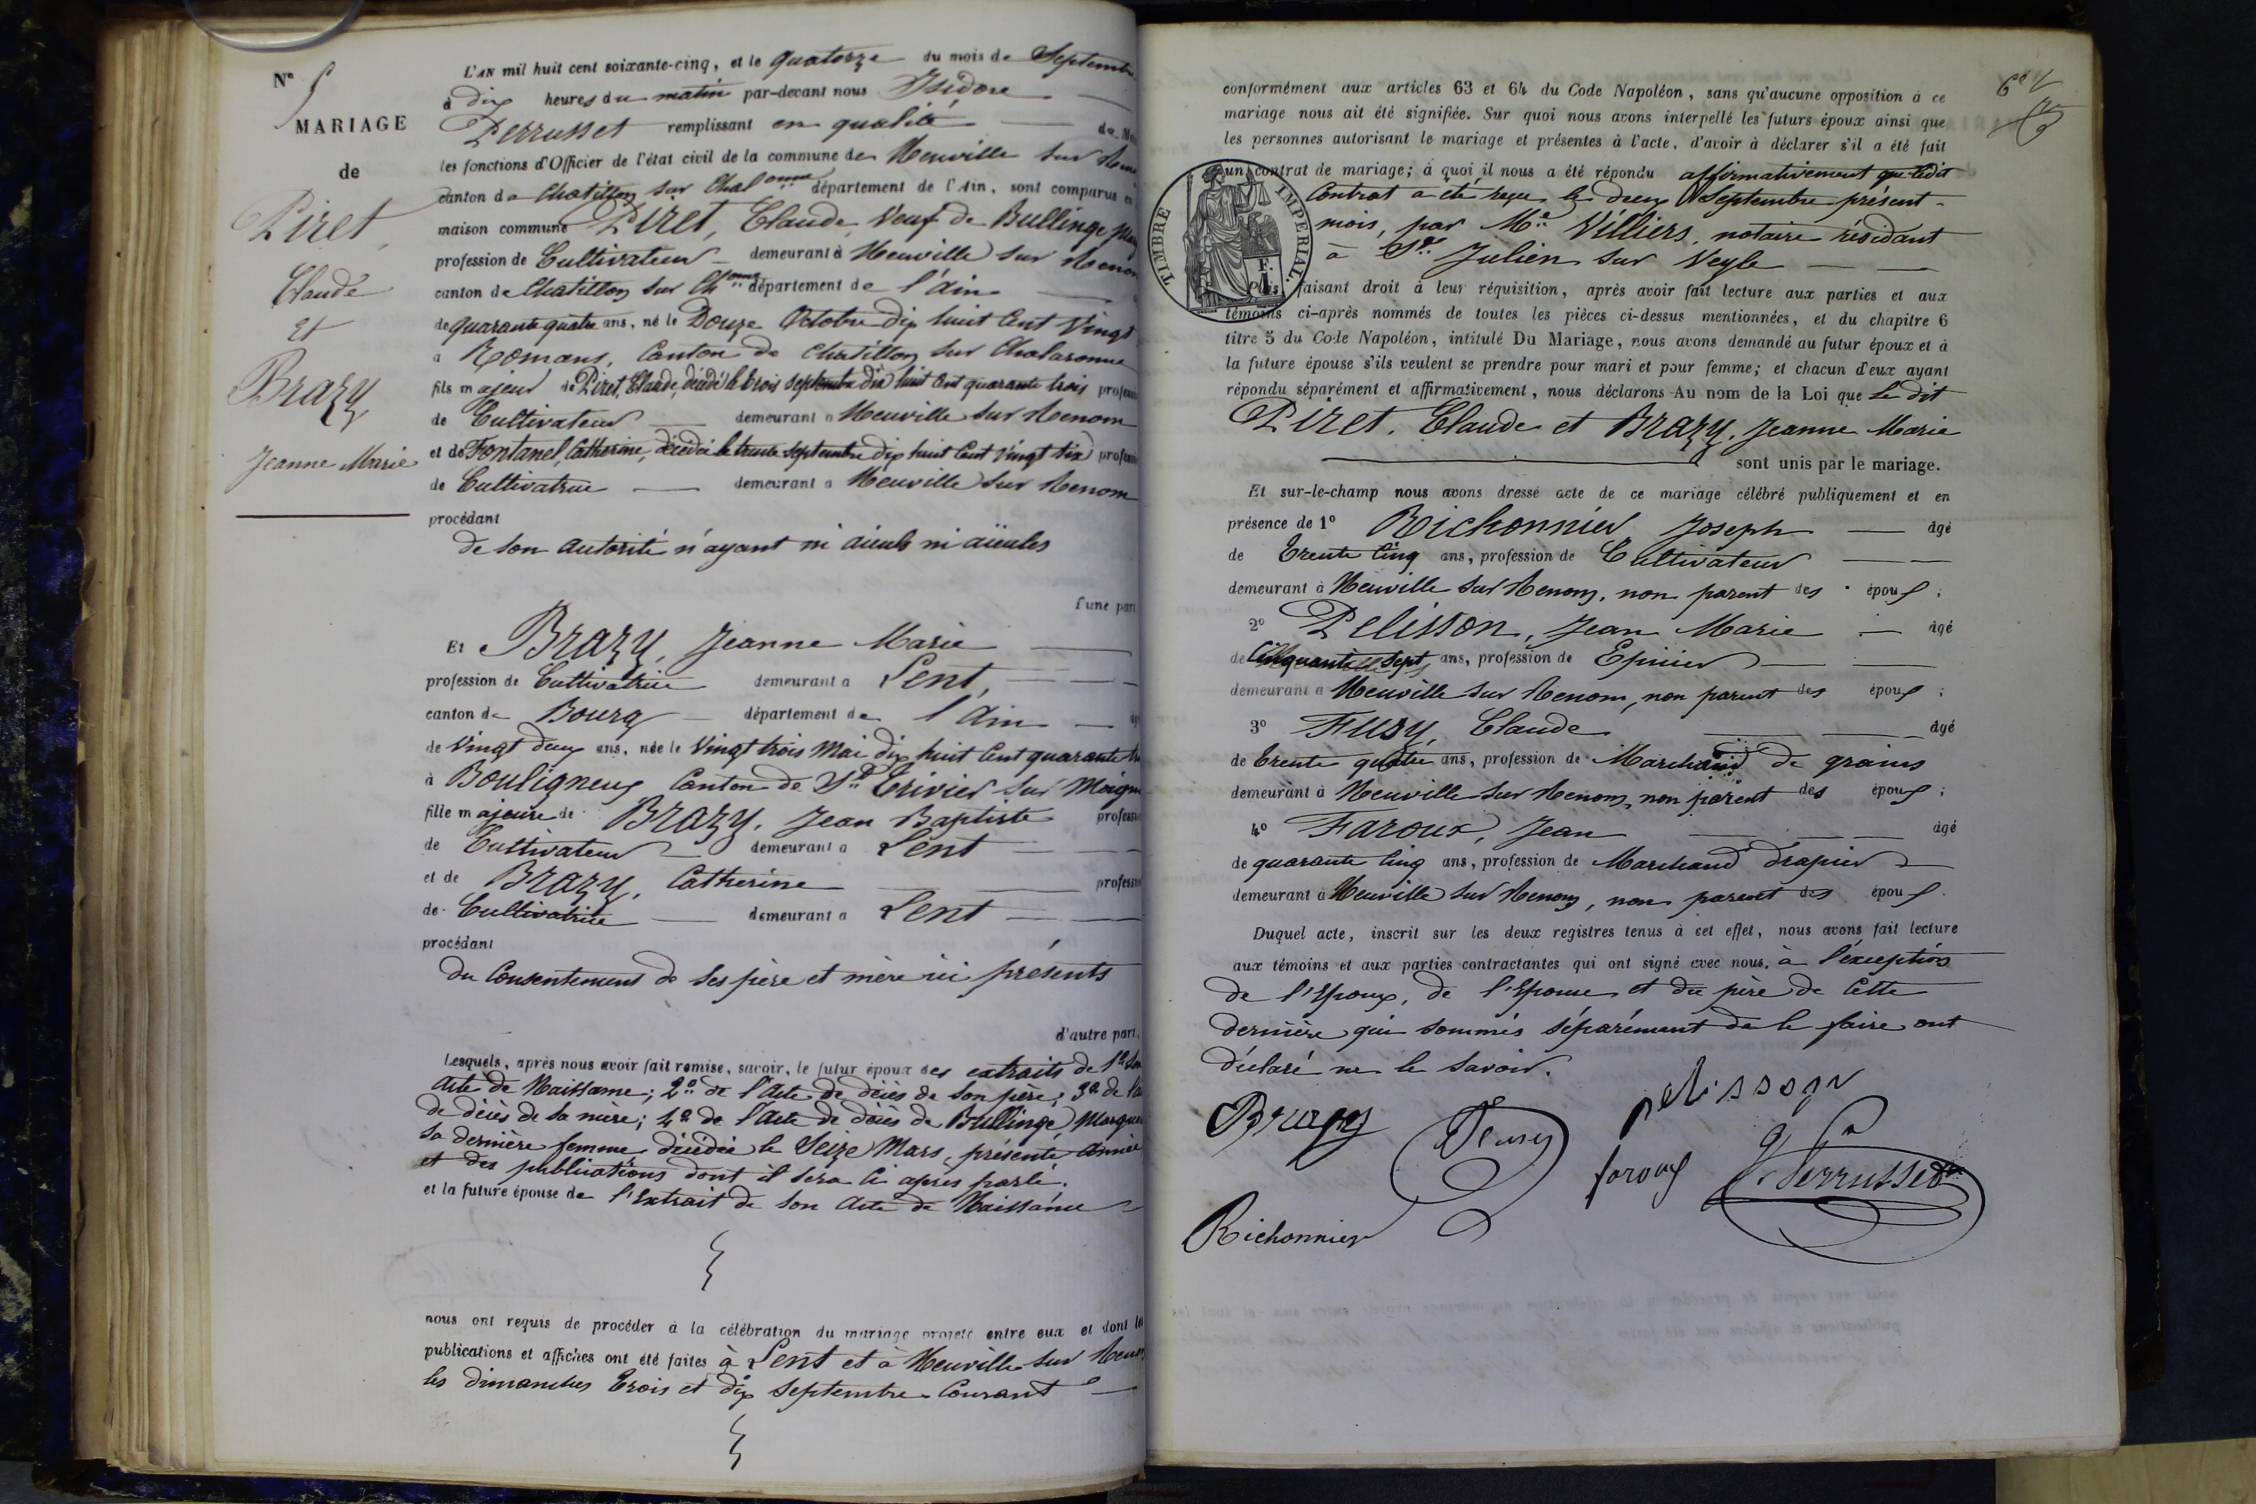 N° 5
MARIAGE
de
Piret,
Claude
Et
Brazy
Jeanne Marie
L'AN mil huit cent soixante-cinq, et le quatorze du mois de Septembre
à dix heures du matin par-devant nous Isidore
Perrusset remplissant en qualité de
les fonctions d'Officier de l'état civil de la commune de Neuville sur Renom
canton de Chatillon sur Chalaronne département de l'Ain, sont comparus en
maison commune Piret, Claude, Veuf de Bullinge
profession de Cultivateur demeurant à Neuville sur Renom
canton de Chatillon sur Ch.onne département de l'ain
de quarante quatre ans, né le Douze Octobre dix huit Cent Vingt
à Romans, Canton de Chatillon sur Chalaronne
fils majeur de Piret, Claude, décédé le trois septembre dix huit Cent quarante trois
de Cultivateur demeurant à Neuville sur Renom
et de Fontanel, Catherine, décédée le trente septembre dix huit Cent Vingt Six
de Cultivatrice demeurant à Neuville sur Renom
procédant
de son autorité n'ayant ni aieuls ni aïeules
d'une part
Et Brazy, Jeanne Marie
profession de Cultivatrice demeurant à Lent,
canton de Bourg département de l'Ain
de Vingt deux ans, née le Vingt trois Mai dix huit Cent quarante
à Bouligneux Canton de St Trivier sur Moignans
fille majeure de Brazy, Jean Baptiste
de Cultivateur demeurant à Lent
et de Brazy, Catherine
de Cultivatrice demeurant à Lent
procédant
du Consentement de ses père et mère ici présents
d'autre part.
Lesquels, après nous avoir fait remise, savoir, le futur époux des extraits de 1° Son
Acte de Naissance; 2° de l'Acte de décès de son père; 3° de l'acte
de décès de sa mère; 4° de l'Acte de décès de Bullinge,
sa dernière femme décédée le Seize Mars, présente année
et des publications dont il sera Ci après parlé.
et la future épouse de l'Extrait de son Acte de Naissance
nous ont requis de procéder à la célébration du mariage projeté entre eux et dont les
publications et affiches ont été faites à Lent et à Neuville sur Renom
les dimanches trois et dix septembre Courant
conformément aux articles 63 et 64 du Code Napoléon, sans qu'aucune opposition à ce
mariage nous ait été signifiée. Sur quoi nous avons interpellé les futurs époux ainsi que
les personnes autorisant le mariage et présentes à l'acte, d'avoir à déclarer s'il a été fait
un contrat de mariage; à quoi il nous a été répondu affirmativement que ledit
Contrat a été reçu le deux Septembre présent
mois, par Me Villiers, notaire résidant
à St Julien sur Veyle
TIMBRE IMPERIAL
faisant droit à leur réquisition, après avoir fait lecture aux parties et aux
témoins ci-après nommés de toutes les pièces ci-dessus mentionnées, et du chapitre 6
titre 5 du Code Napoléon, intitulé Du Mariage, nous avons demandé au futur époux et à
la future épouse s'ils veulent se prendre pour mari et pour femme; et chacun d'eux ayant
répondu séparément et affirmativement, nous déclarons Au nom de la Loi que Le dit
Piret, Claude et Brazy, Jeanne Marie
sont unis par le mariage.
Et sur-le-champ nous avons dressé acte de ce mariage célébré publiquement et en
présence de 1° Richonnier Joseph âgé
de Trente Cinq ans, profession de Cultivateur
demeurant à Neuville sur Renom, non parent des époux;
2° Pelisson, Jean Marie âgé
de Cinquante sept ans, profession de Epicier
demeurant à Neuville sur Renom, non parent des époux;
3° Fusy, Claude âgé
de Trente quatre ans, profession de Marchand de grains
demeurant à Neuville sur Renom, non parent des époux;
4° Faroux, Jean âgé
de quarante Cinq ans, profession de Marchand Drapier
demeurant à Neuville sur Renom, non parent des époux.
Duquel acte, inscrit sur les deux registres tenus à cet effet, nous avons fait lecture
aux témoins et aux parties contractantes qui ont signé avec nous, à l'éxception
de l'Epoux, de l'Epouse et du père de Cette
dernière qui sommés séparément de le faire ont
déclaré ne le savoir.
pelisson
Brazy
faroux
Perrusset
Richonnier